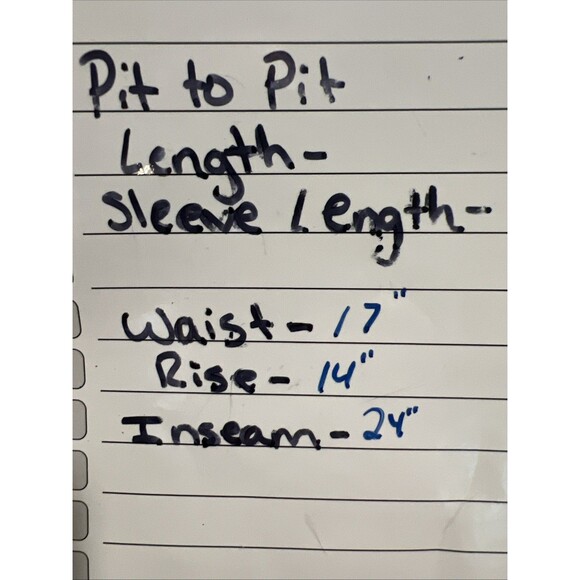 Pit to Pit
Length-
Sleeve Length-
Waist- 17"
Rise- 14"
Inseam- 24"